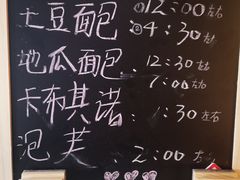 土豆面包 12:00左右
4:30左右
地瓜面包 12:30左右
7:00左右
卡布其诺 1:30左右
泡芙 2:00左右